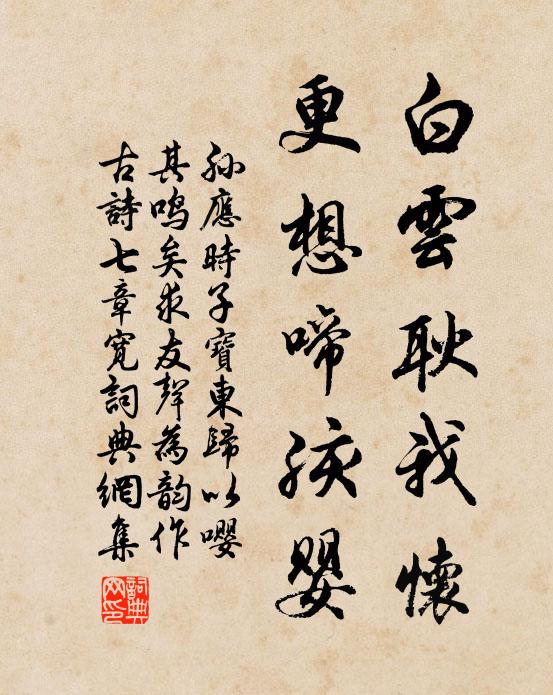 白雲耿我懷
更想啼孩嬰
孙應時子寶東歸以嚶
其鸣矣求友聲為韵作
古詩七章寬詞典網集
詞典
网印